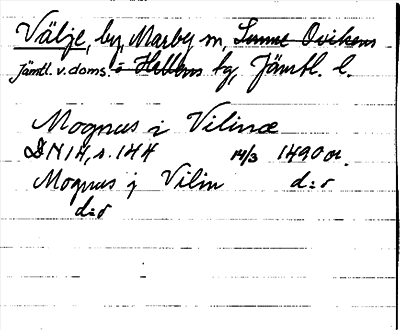 Välje, by, Marby sn, Sunne Ovikens
Jämtl. v. doms. o Hallens tg, Jämtl. l.
Mognus i Vilinæ
DN 14, s. 144 14/3 1490 or.
Mognus i Vilin d:o
d:o